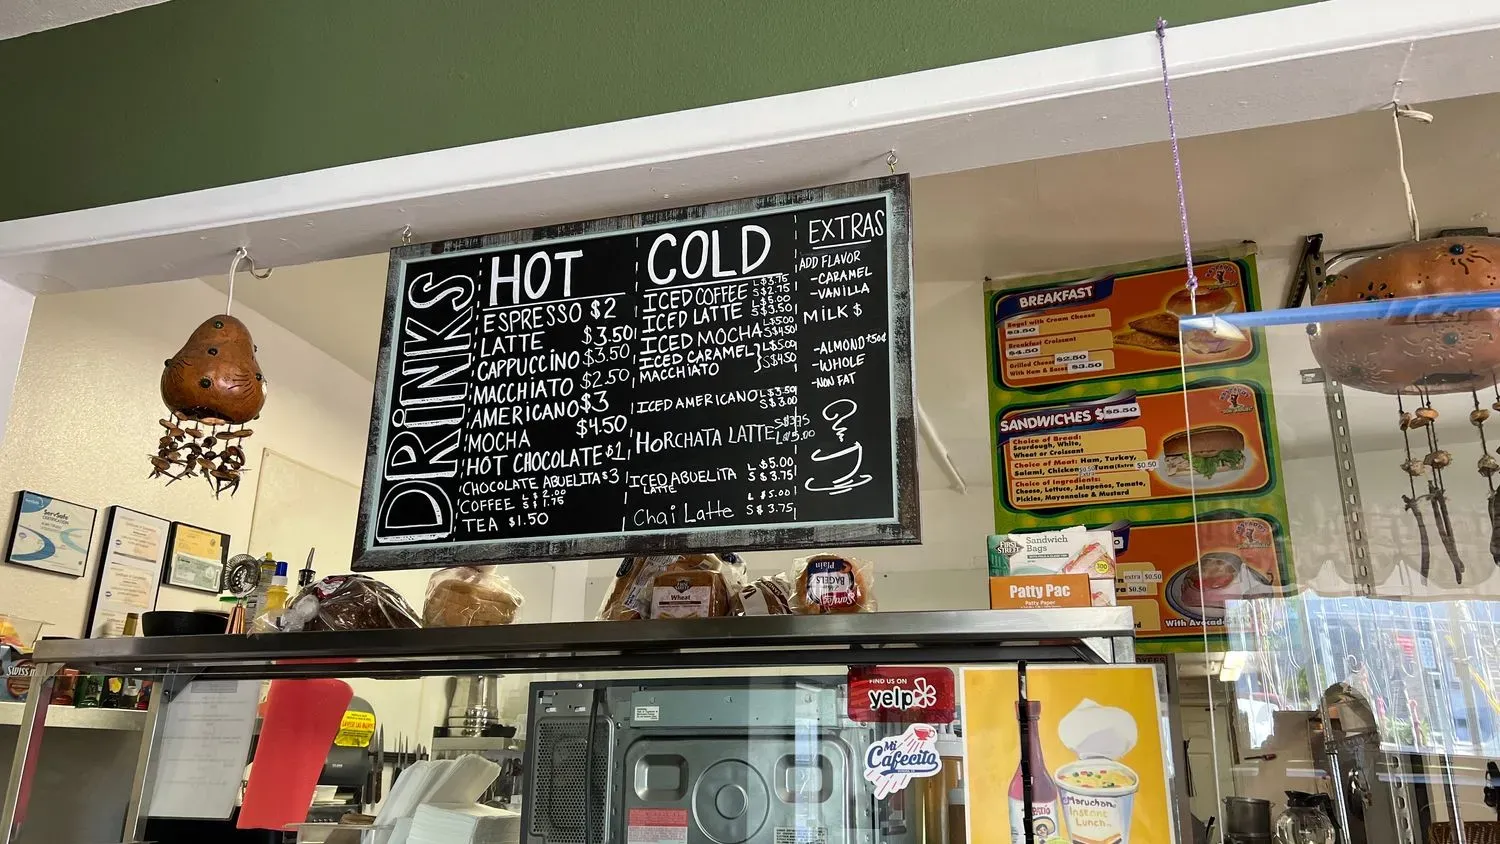 DRiNKS
HOT
ESPRESSO $2
LATTE $3.50
CAPPUCCiNO $3.50
MACCHiATO $2.50
AMERICANO $3
MOCHA $4.50
HOT CHOCOLATE $1
CHOCOLATE ABUELITA $3
COFFEE L $2.00
S $1.75
TEA $1.50
COLD
ICED COFFEE L $3.75
S $2.75
ICED LATTE L $5.00
S $3.50
ICED MOCHA L $5.00
S $4.50
ICED CARAMEL L $5.00
MACCHIATO S $4.50
ICED AMERICANO L $3.50
S $3.00
HORCHATA LATTE S $3.75
L $5.00
ICED ABUELiTA L $5.00
LATTE S $3.75
Chai Latte L $5.00
S $3.75
EXTRAS
ADD FLAVOR
-CARAMEL
-VANILLA
MiLK $
-ALMOND +50¢
-WHOLE
-NON FAT
BREAKFAST
Bagel with Cream Cheese
$3.50
Breakfast Croissant
$4.50
Grilled Cheese $2.50
With Ham & Bacon $3.50
SANDWICHES $5.50
Choice of Bread:
Sourdough, White,
Wheat or Croissant
Choice of Meat: Ham, Turkey,
Salami, Chicken $0.50 Tuna (Extra $0.50
Choice of Ingredients:
Cheese, Lettuce, Jalapeños, Tomato,
Pickles, Mayonnaise & Mustard
extra $0.50
With Avocado
FIRST STREET
Sandwich
Bags
Patty Pac
Patty Paper
ServSafe
CERTIFICATION
Wheat
Plain
BAGELS
Sara Lee
SWISS
FIND US ON
yelp
Mi
Cafecito
TAPATIO
Maruchan
Instant
Lunch